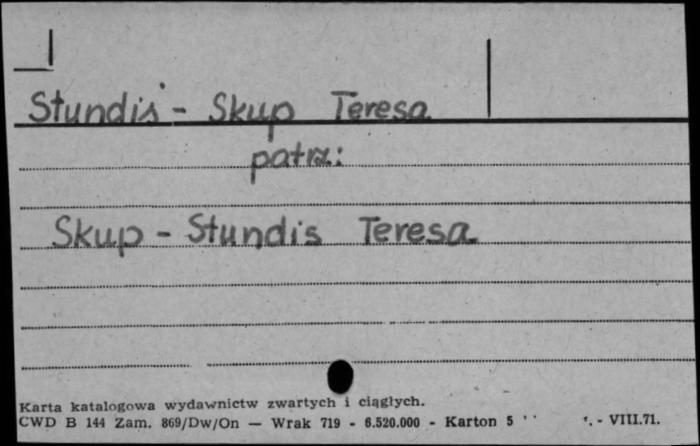 Stundis - Skup Teresa
patrz:
Skup - Stundis Teresa
Karta katalogowa wydawnictw zwartych i ciągłych.
CWD B 144 Zam. 869/Dw/On — Wrak 719 - 6.520.000 - Karton 5 - VIII.71.